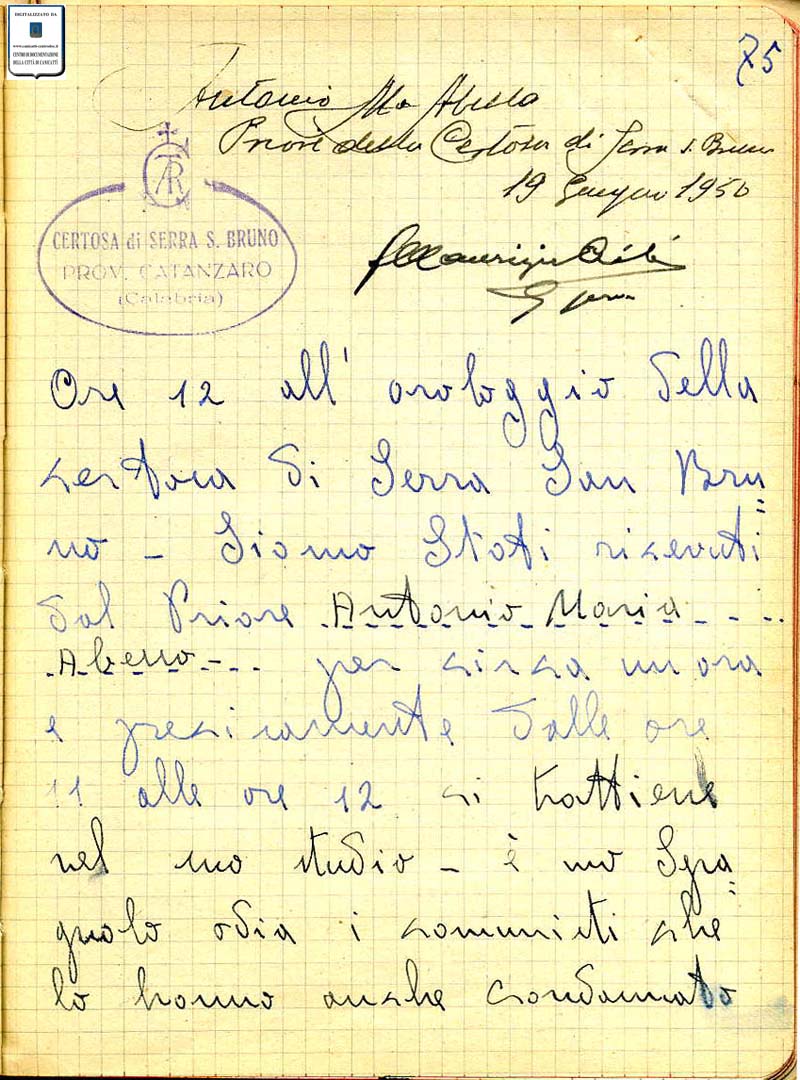 DIGITALIZZATO DA
www.canicatti-centrodoc.it
CENTRO DI DOCUMENTAZIONE
DELLA CITTÀ DI CANICATTÌ
75
Antonio Ma Abella
Priore della Certosa di Serra S. Bruno
19 Giugno 1950
CERTOSA di SERRA S. BRUNO
PROV. CATANZARO
(Calabria)
Ore 12 all' orologgio della
certosa di Serra San Bru=
no – Siamo Stati ricevuti
dal Priore Antonio Maria
Abella per circa un ora
e precisamente dalle ore
11 alle ore 12 ci trattiene
nel suo studio – è uno Spa=
gnolo odia i comunisti che
lo hanno anche condannato